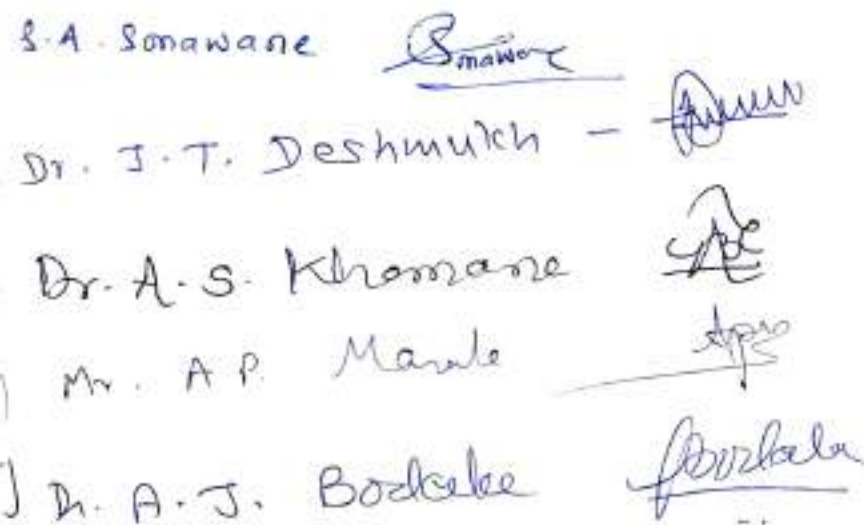 S.A. Sonawane Sonawane
Dr. J.T. Deshmukh -
Dr. A.S. Khomane
Mr. A P. Marale
Dr. A.J. Bodake